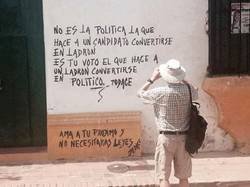 NO ES LA POLITICA LA QUE
HACE A UN CANDIDATO CONVERTIRSE
EN LADRON
ES TU VOTO EL QUE HACE A
UN LADRON CONVERTIRSE
EN POLITICO.
AMA A TU PROJIMO Y
NO NECESITARAS LEYES